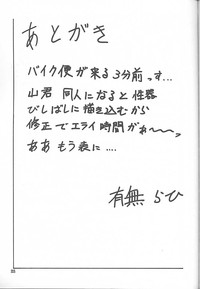 あとがき
バイク便が来る3分前っす...
山君 同人になると性器
びしばしに描き込むから
修正でエライ時間がぁ〜〜っ
ああ もう夜に....
有無らひ
33